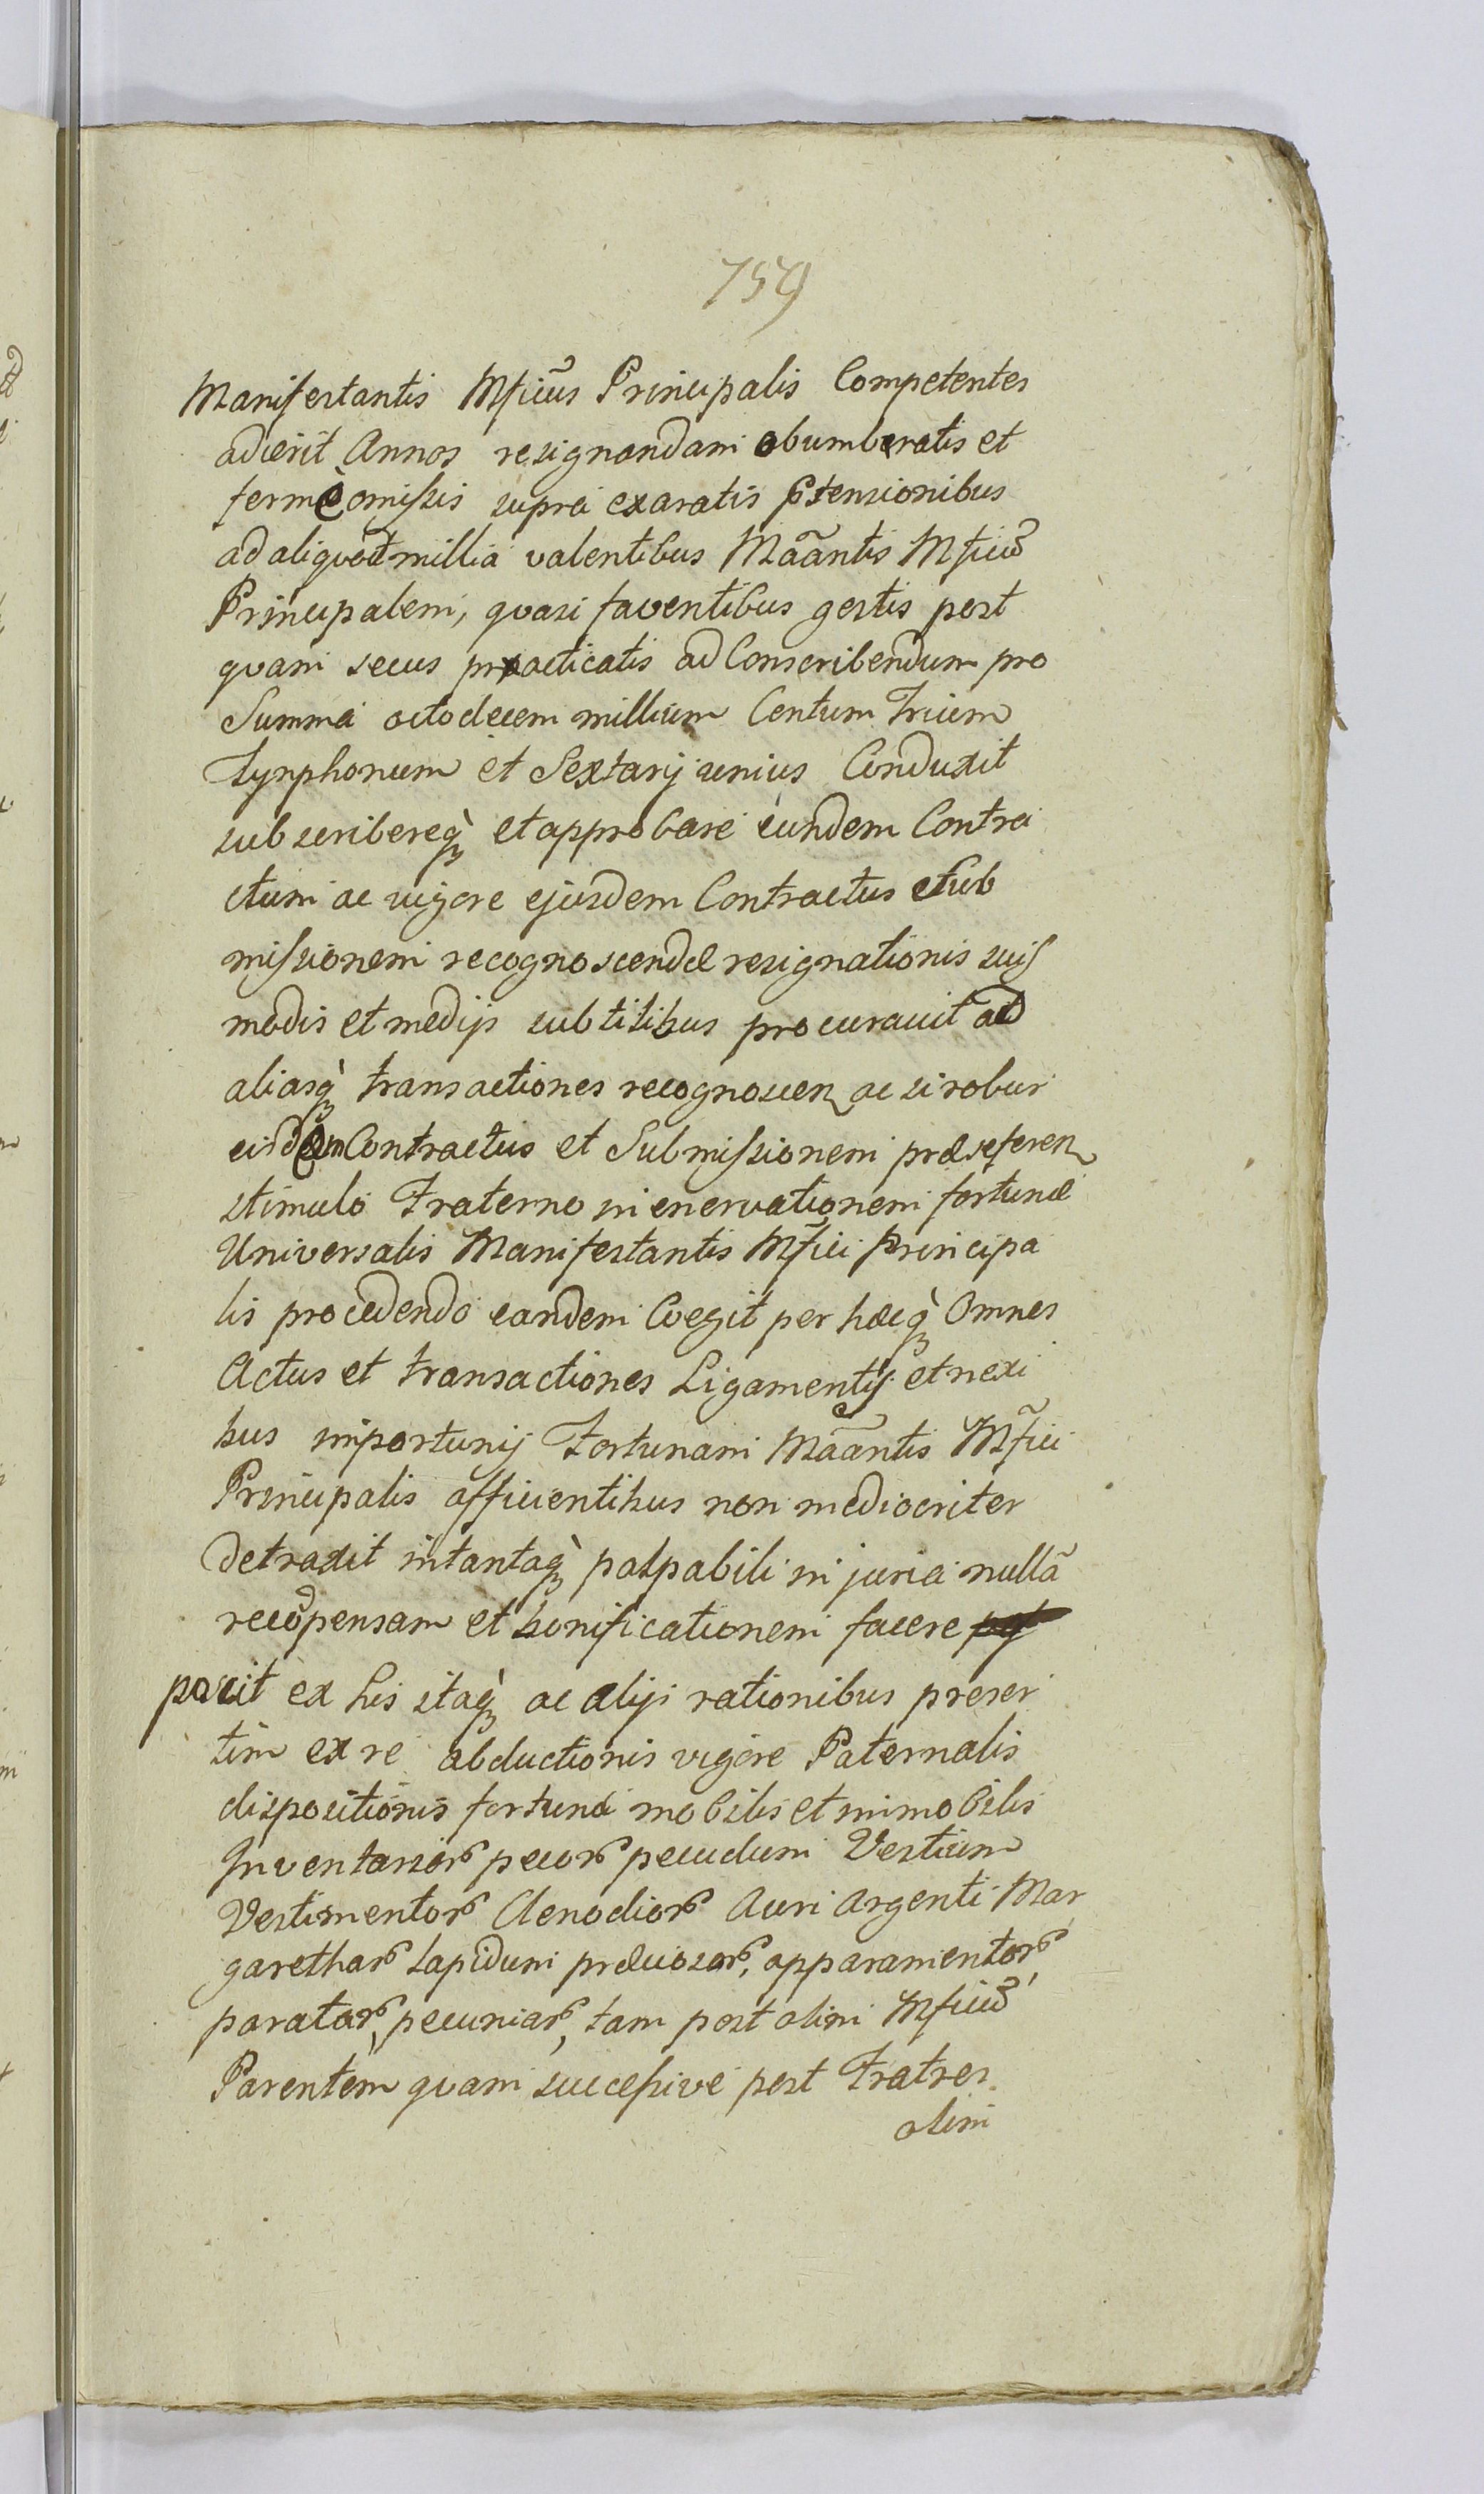 759
Manifestantis Mficus Principalis Competentes
adierit Annos resignandam obumbratis et
fermè omissis supra exaratis ptensionibus
ad aliquot millia valentibus Maãntis Mficũ
Principalem, quasi faventibus gestis post
quam secus practicatis ad Conscribendum pro
Summa octodecem millium Centum Trium
Tynphonum et Sextarij unius Conduxit
subscribereq̀ et approbare eundem Contra
ctum ac vigore ejusdem Contractus Sub
missionem recognoscendæ resignationis suis
modis et medijs subtilibus procuravit ad
aliasq̀ transactiones recognoscen ac si robur
eisdem Contractus et Submissionem præseferen
stimulo Fraterno in enervationem fortunæ
Universalis Manifestantis Mfici Principa
lis procedendo eandem Coegit per hæcq̀ Omnes
Actus et transactiones Ligamentis et nexi
bus importunis Fortunam Maãntis Mfici
Principalis afficientibus non mediocriter
detraxit intantaq̀ palpabili injuria nullã
recõpensam et bonificationem facere
parcit ex his itaq̀ ac alijs rationibus preser
tim ex re abductionis vigore Paternalis
dispositionis fortuna mobilis et immobilis
Inventarior pecor pecudum Vestium
Vestimentor Clenodior Auri Argenti Mar
garethar Lapidum præciosor, apparamentor
paratar, pecuniar, tam post olim Mficũ
Parentem quam successive post Fratres
olim